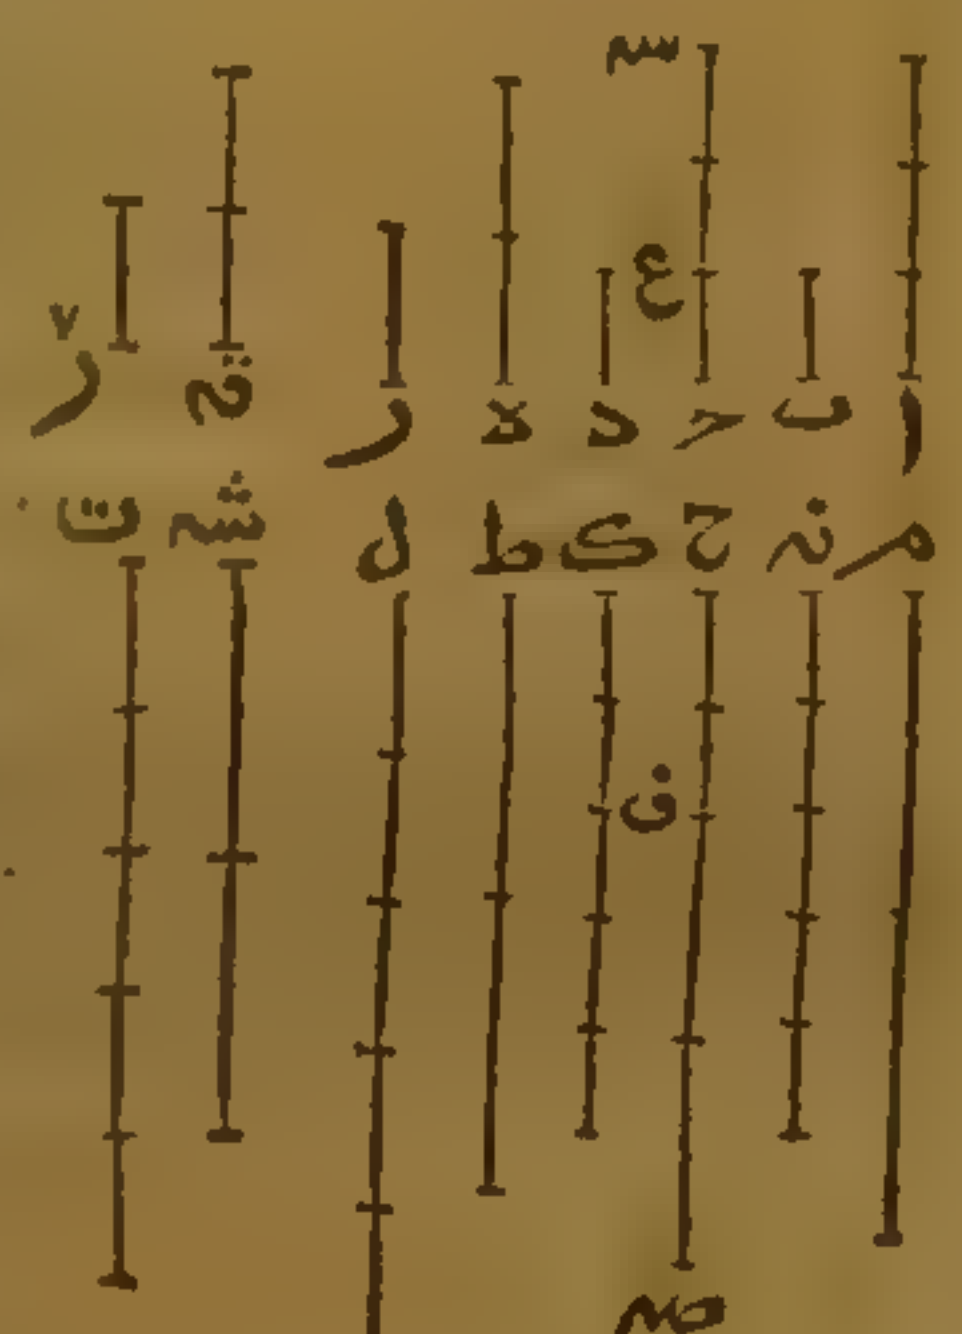 س
ع
ا ب ح د ه ر ق ر
م ن ح ك ط ل ش ت
ف
ص